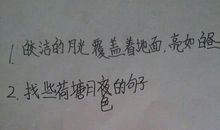 1. 皎洁的月光覆盖着地面,亮如白昼
2. 找些荷塘月夜的句子
色